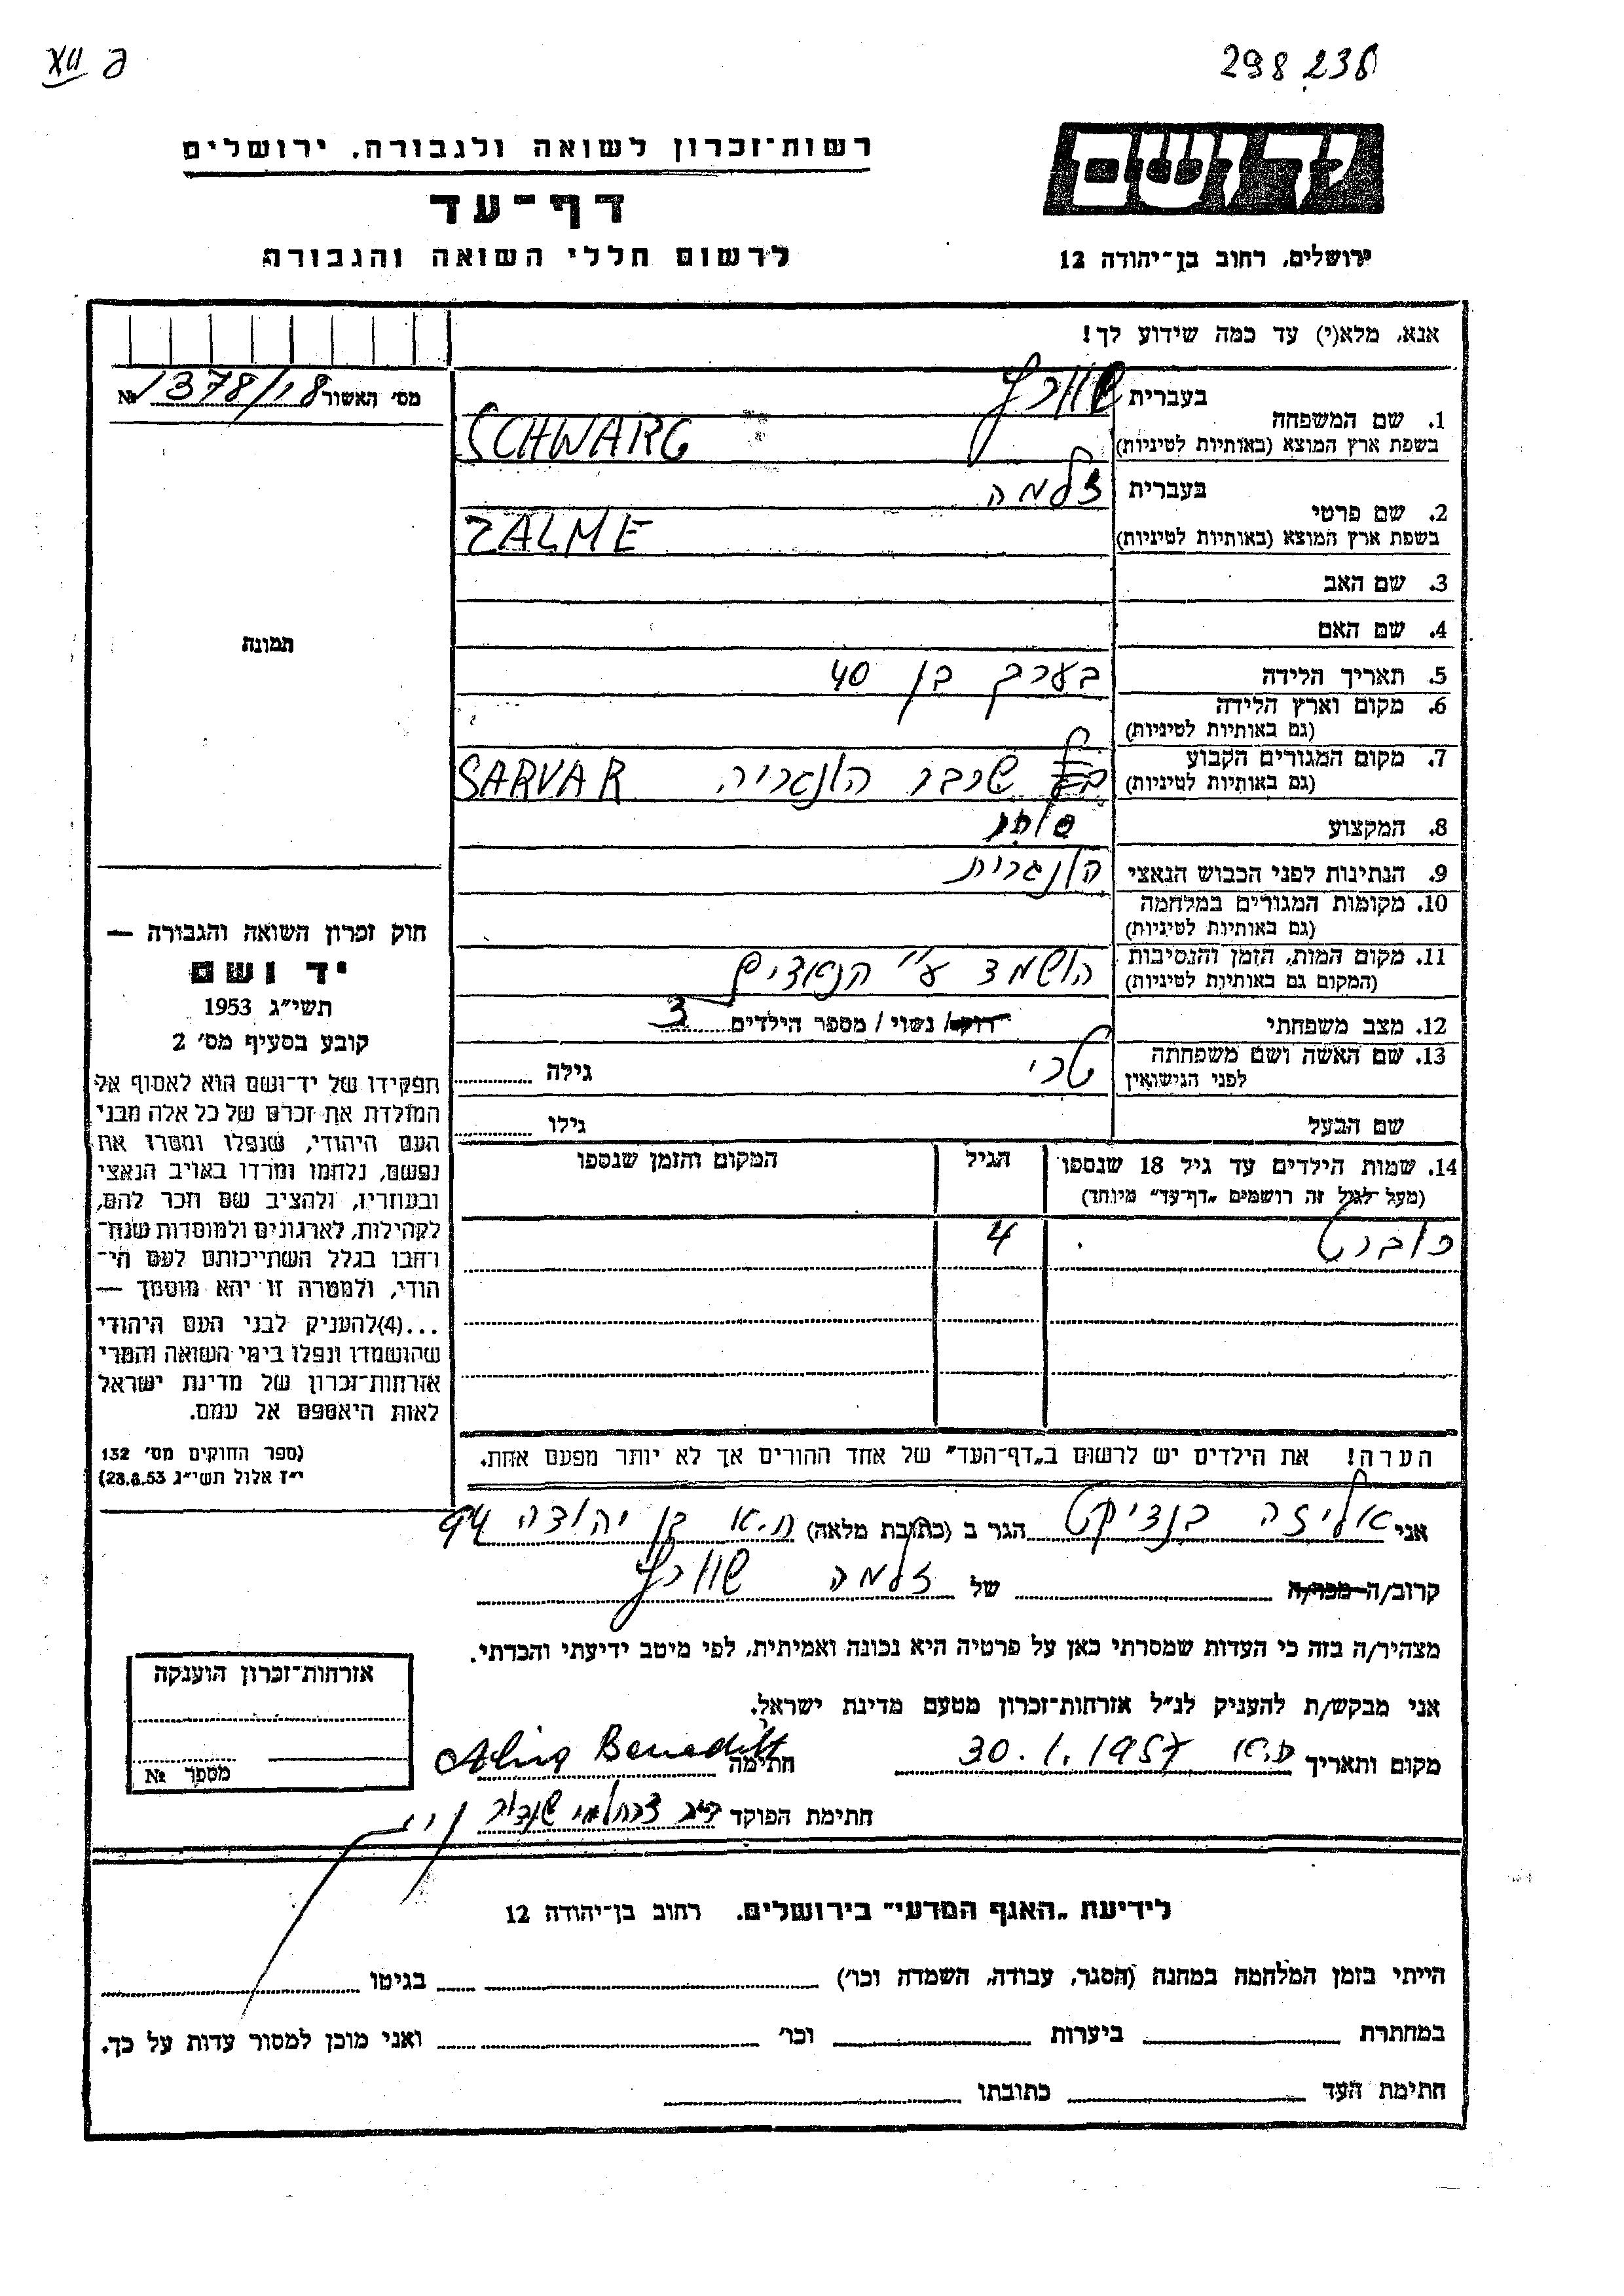 XII
298 236
יד ושם
רשות־זכרון לשואה ולגבורה, ירושלים
דף־עד
לרשום חללי השואה והגבורה
ירושלים, רחוב בן־יהודה 12
אנא, מלא(י) עד כמה שידוע לך!
מס׳ האשור 1378/18 №
1. שם המשפחה
בעברית שוורץ
בשפת ארץ המוצא (באותיות לטיניות) SCHWARG
2. שם פרטי
בעברית זלמה
בשפת ארץ המוצא (באותיות לטיניות) ZALME
3. שם האב
4. שם האם
תמונה
5. תאריך הלידה בערך בן 40
6. מקום וארץ הלידה
(גם באותיות לטיניות)
7. מקום המגורים הקבוע
(גם באותיות לטיניות) שרבר הונגריה. SARVAR
8. המקצוע סוחר
9. הנתינות לפני הכבוש הנאצי הונגרית
10. מקומות המגורים במלחמה
(גם באותיות לטיניות)
11. מקום המות, הזמן והנסיבות
(המקום גם באותיות לטיניות) הושמד ע״י הנאצים
12. מצב משפחתי רווק/ נשוי / מספר הילדים 3
13. שם האשה ושם משפחתה
לפני הנישואין טרי גילה
שם הבעל גילו
14. שמות הילדים עד גיל 18 שנספו הגיל המקום והזמן שנספו
(מעל לגיל זה רושמים „דף־עד״ מיוחד)
רוברט 4
חוק זכרון השואה והגבורה —
יד ושם
תשי״ג 1953
קובע בסעיף מס׳ 2
תפקידו של יד־ושם הוא לאסוף אל
המולדת את זכרם של כל אלה מבני
העם היהודי, שנפלו ומסרו את
נפשם, נלחמו ומרדו באויב הנאצי
ובעוזריו, ולהציב שם וזכר להם,
לקהילות, לארגונים ולמוסדות שנח־
רבו בגלל השתייכותם לעם הי־
הודי, ולמטרה זו יהא מוסמך —
...(4) להעניק לבני העם היהודי
שהושמדו ונפלו בימי השואה והמרי
אזרחות־זכרון של מדינת ישראל
לאות היאספם אל עמם.
(ספר החוקים מס׳ 132
י״ז אלול תשי״ג 28.8.53)
הערה! את הילדים יש לרשום ב„דף־העד״ של אחד ההורים אך לא יותר מפעם אחת.
אני אליזה בנדיקט הגר ב (כתובת מלאה) ת.א בן יהודה 94
קרוב/ה מכר/ה של זלמה שוורץ
מצהיר/ה בזה כי העדות שמסרתי כאן על פרטיה היא נכונה ואמיתית, לפי מיטב ידיעתי והכרתי.
אני מבקש/ת להעניק לנ״ל אזרחות־זכרון מטעם מדינת ישראל.
מקום ותאריך ת.א 30.1.1957 חתימה Benedikt
חתימת הפוקד
אזרחות־זכרון הוענקה
מספר №
לידיעת „האגף המדעי״ בירושלים. רחוב בן־יהודה 12
הייתי בזמן המלחמה במחנה (הסגר, עבודה, השמדה וכו׳) בגיטו
במחתרת ביערות וכו׳ ואני מוכן למסור עדות על כך.
חתימת העד כתובתו